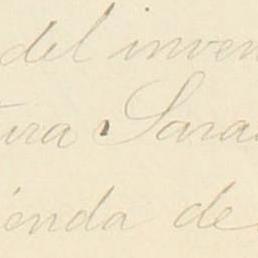 del inven
tura Sara
ienda de